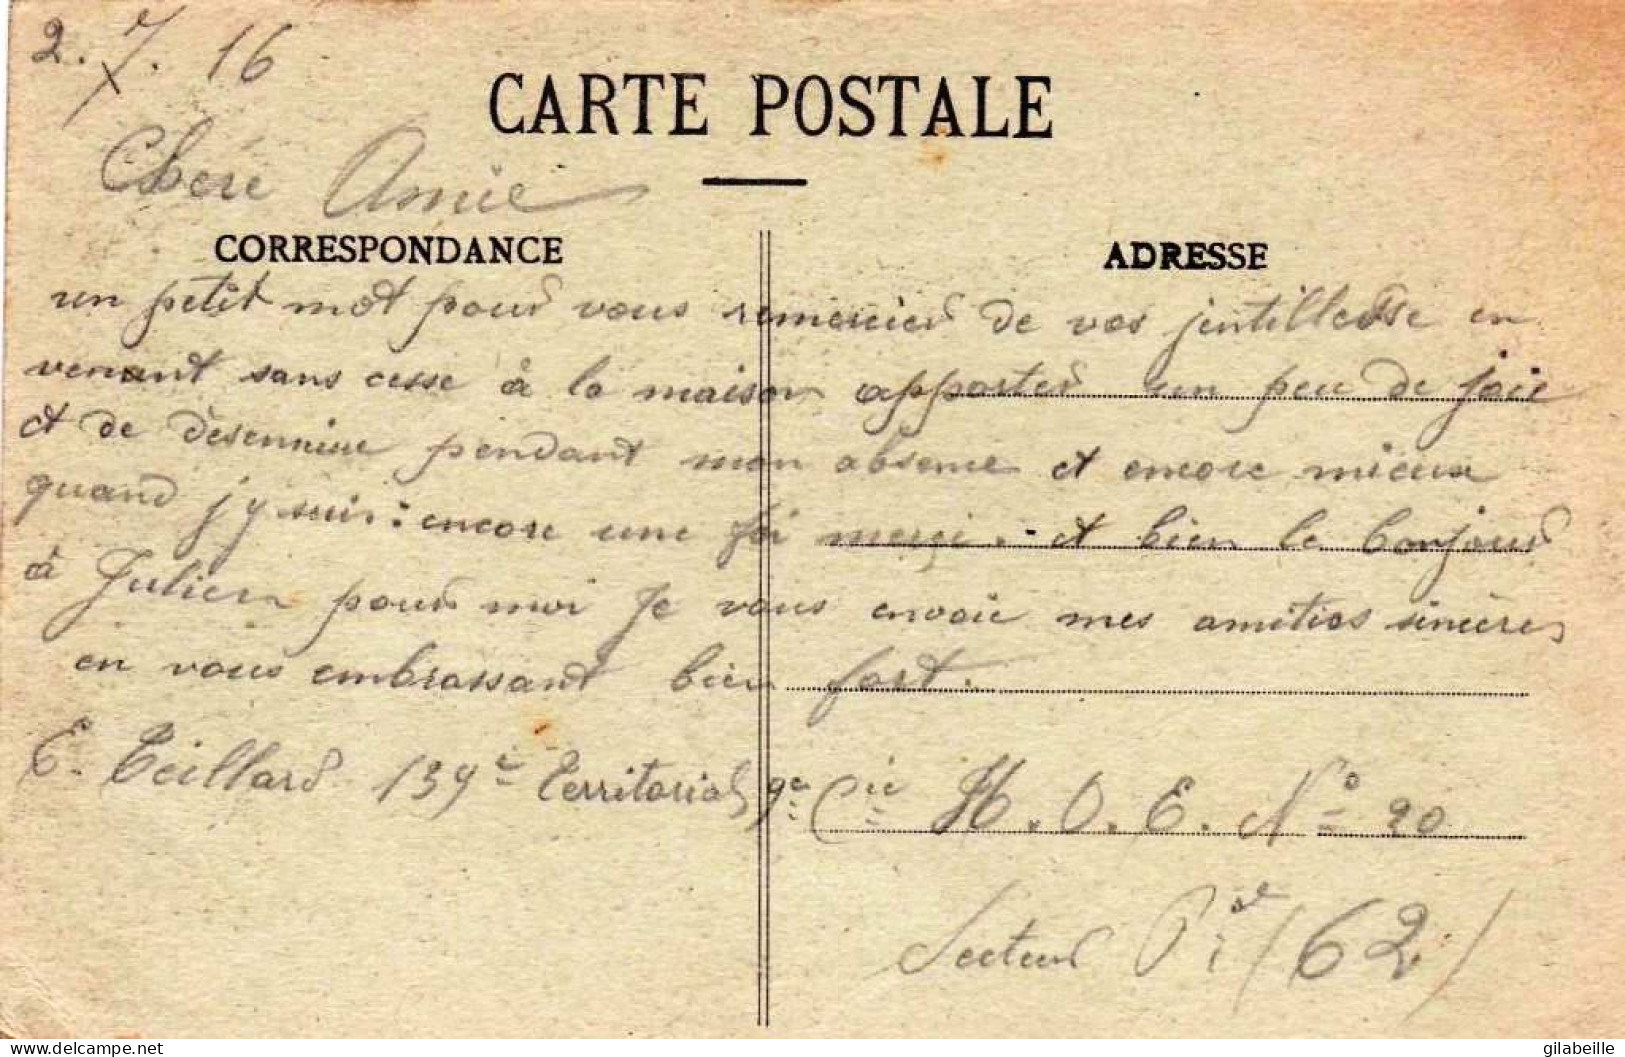 2.7.16
CARTE POSTALE
Chère Amie
CORRESPONDANCE
ADRESSE
un petit mot pour vous remercier de vos jentillesse en
venant sans cesse à la maison apporter un peu de joie
et de désennuie pendant mon absence et encore mieux
quand j'y suis : encore une foi merçi. et bien le bonjour
à Julien pour moi je vous envoie mes amitiés sincères
en vous embrassant bien fort.
E. Teillard 139e Territorial 9e Cie H.O.E. No 20
Secteur Pal (62)
delcampe.net
gilabeille